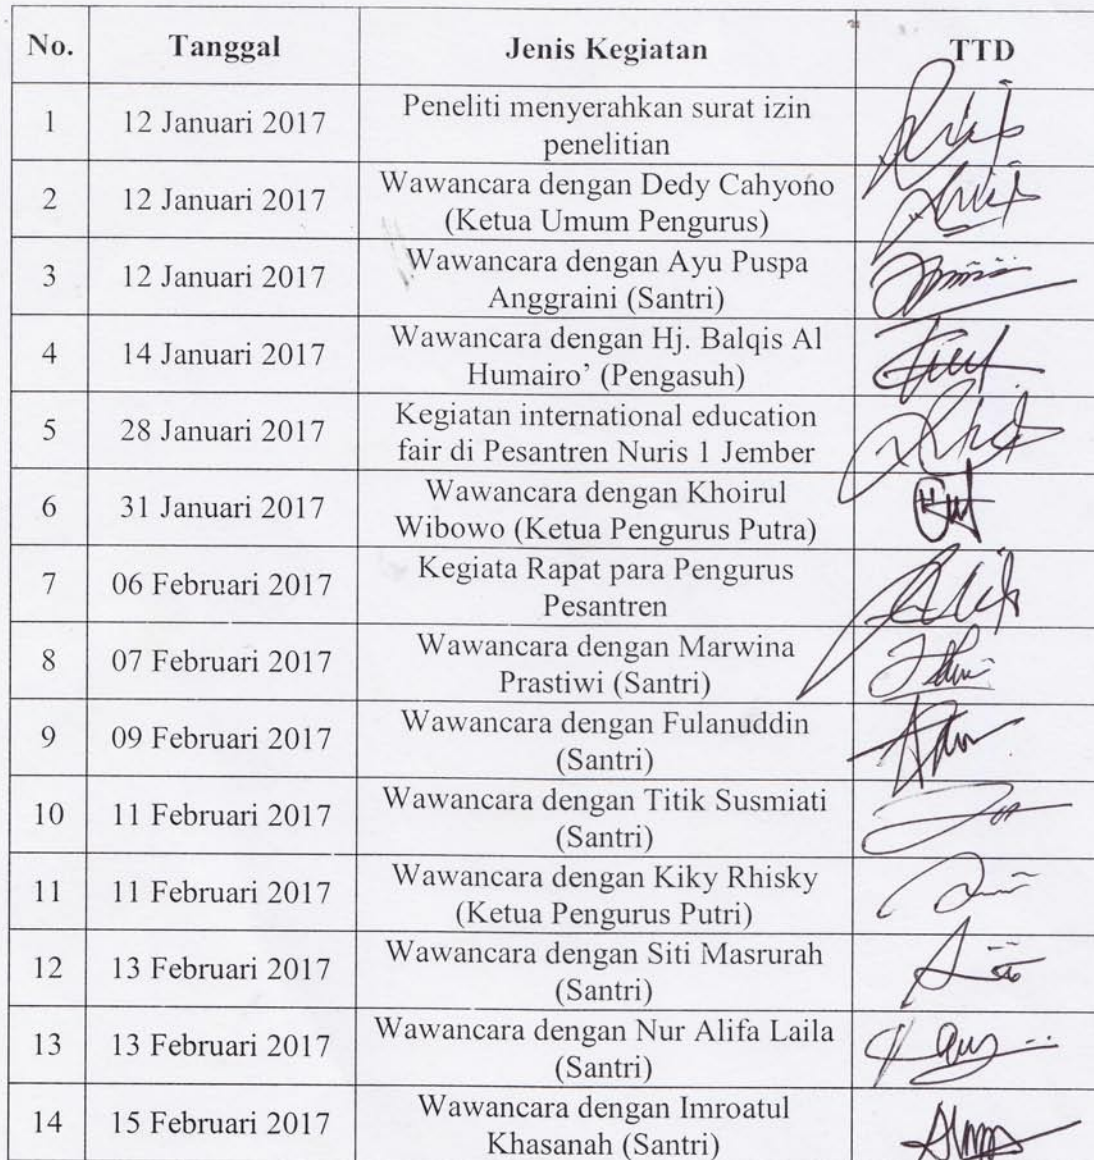 No. Tanggal Jenis Kegiatan TTD
1 12 Januari 2017 Peneliti menyerahkan surat izin
penelitian
2 12 Januari 2017 Wawancara dengan Dedy Cahyono
(Ketua Umum Pengurus)
3 12 Januari 2017 Wawancara dengan Ayu Puspa
Anggraini (Santri)
4 14 Januari 2017 Wawancara dengan Hj. Balqis Al
Humairo’ (Pengasuh)
5 28 Januari 2017 Kegiatan international education
fair di Pesantren Nuris 1 Jember
6 31 Januari 2017 Wawancara dengan Khoirul
Wibowo (Ketua Pengurus Putra)
7 06 Februari 2017 Kegiata Rapat para Pengurus
Pesantren
8 07 Februari 2017 Wawancara dengan Marwina
Prastiwi (Santri)
9 09 Februari 2017 Wawancara dengan Fulanuddin
(Santri)
10 11 Februari 2017 Wawancara dengan Titik Susmiati
(Santri)
11 11 Februari 2017 Wawancara dengan Kiky Rhisky
(Ketua Pengurus Putri)
12 13 Februari 2017 Wawancara dengan Siti Masrurah
(Santri)
13 13 Februari 2017 Wawancara dengan Nur Alifa Laila
(Santri)
14 15 Februari 2017 Wawancara dengan Imroatul
Khasanah (Santri)